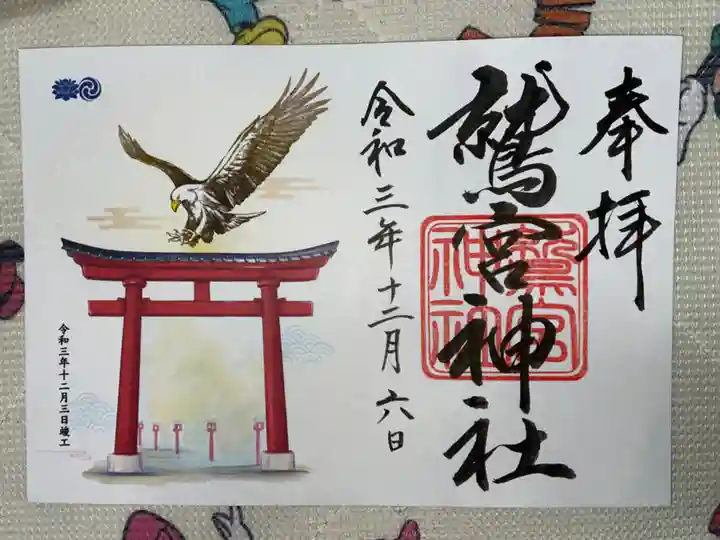 奉拝
鷲宮神社
鷲宮
神社
令和三年十二月六日
令和三年十二月三日竣工